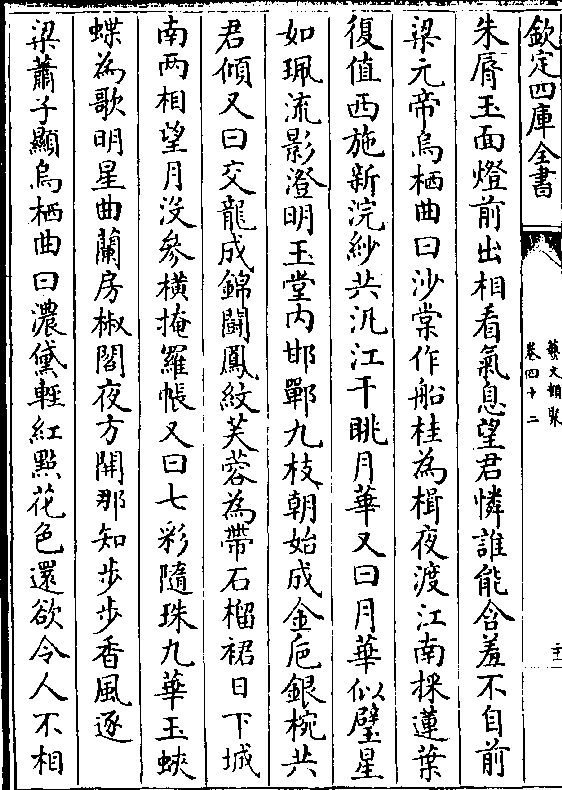 欽定四庫全書
藝文類聚
卷四十二
二十
朱脣玉面燈前出相看氣息望君憐誰能含羞不自前
梁元帝烏栖曲曰沙棠作船桂為楫夜渡江南採蓮葉
復值西施新浣紗共汎江干眺月華又曰月華似璧星
如珮流影澄明玉堂內邯鄲九枝朝始成金巵銀椀共
君傾又曰交龍成錦鬪鳳紋芙蓉為帶石榴裙日下城
南兩相望月沒參橫掩羅帳又曰七彩隨珠九華玉蛺
蝶為歌明星曲蘭房椒閣夜方開那知步步香風逐
梁蕭子顯烏栖曲曰濃黛輕紅點花色還欲令人不相